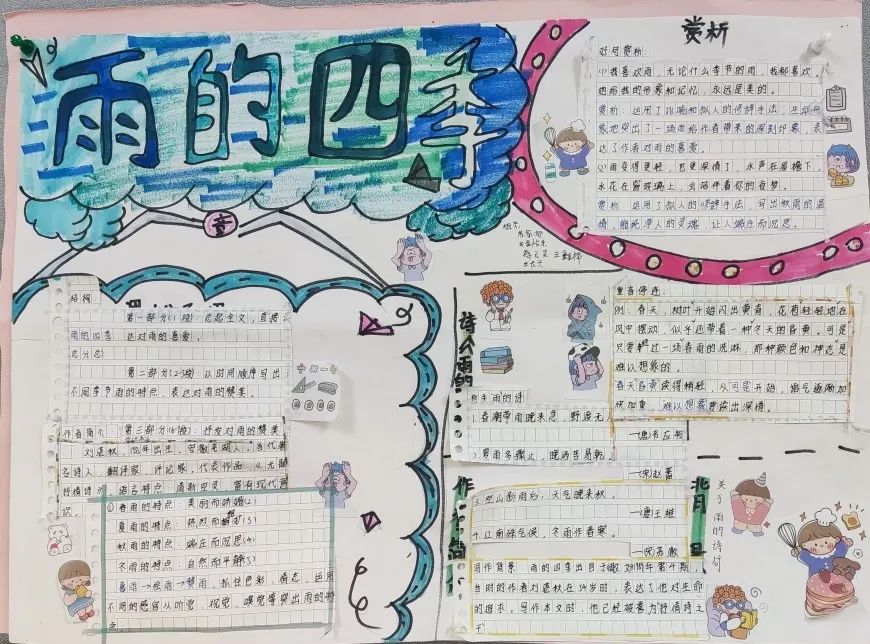 雨的四季
赏析
好句赏析:
(1)我喜欢雨,无论什么季节的雨,我都喜欢。
她给我的形象和记忆,永远是美的。
赏析:运用了
和拟人的修辞手法,生动形
象地突出了
雨给作者带来的深刻印象,表
达了作者对雨的喜爱。
(2)雨变得更轻,也更深情了,水声在屋檐下,
水花在窗玻璃上,会陪伴着你的夜梦。
赏析:运用了拟人的修辞手法,写出秋雨的温
情,能纯净人的灵魂,让人端庄而沉思。
章
结构
第一部分(1段):总起全文,直接
雨的四季
达对雨的喜爱。
总分总
第二部分(2-5段):以时间顺序写出了
不同季节雨的特点,表达对雨的赞美。
作者简介
第三部分(6段):抒发对雨的赞美
刘湛秋,
年出生,安徽芜湖人,当代著
名诗人、翻译家、评论家,代表作品:《无题
抒情诗》,语言特点:清新空灵,富有现代意
识。
①春雨的特点:美丽而娇媚(2)
夏雨的特点:热烈而粗犷(3)
秋雨的特点:端庄而沉思(4)
冬雨的特点:自然而平静(5)
不同的感官从听觉、视觉、嗅觉等突出雨的特
点。
诗人雨的
有关雨的诗
1.春潮带雨晚来急,野渡无人
—唐韦应物
2.
雨多骤止,晚浴
—宋赵蕃
3.空山新雨后,天气晚来秋。
—唐王维
4.江南殊气候,冬雨作春寒。
重音停连:
例:春天,树叶开始闪出黄青,花苞轻轻地在
风中摆动,似乎还带着一种冬天的昏黄。可是
只要经过一场春雨的洗淋,那种颜色和神态是
难以想象的。
春天昏黄读得稍轻,从可是开始,语气逐渐加
快加重,难以想象要读出深情。
作者简介
背景
关于雨的诗句
写作背景:雨的四季出自
当时的作者刘湛秋在
岁时,表达了他对生命
的追求。写作本文时,他已经被誉为抒情诗之
王